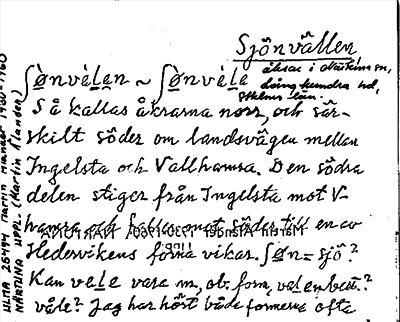 Sjönvällen
åkrar i Närtuna sn,
Långhundra hd,
Sthlms län.
ʃønvèlen ~ ʃønvèle
Så kallas åkrarna norr och sär-
skilt söder om landsvägen mellan
Ingelsta och Vallhamra. Den södra
delen stiger från Ingelsta mot V-
hamra och söder till en av
Hedervikens forna vikar. ʃøn = sjö?
Kan vele vara m, ob. form, velen best.?
våle? Jag har hört både formerna ofta
ULMA 26494 Martin Ålander 1980-1960
NÄRTUNA UPPL. (Martin Ålander)